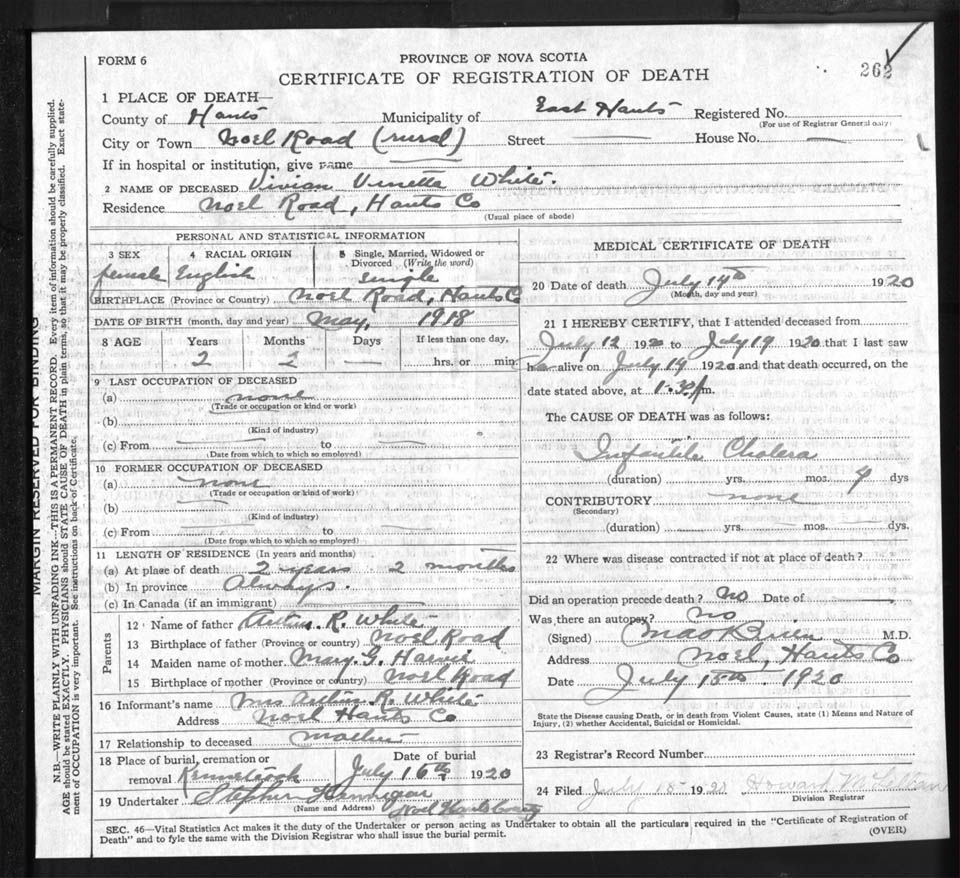 FORM 6
PROVINCE OF NOVA SCOTIA
262
CERTIFICATE OF REGISTRATION OF DEATH
1 PLACE OF DEATH—
County of Hants Municipality of East Hants Registered No.
(For use of Registrar General only)
City or Town Noel Road (rural) Street House No.
If in hospital or institution, give name
2 NAME OF DECEASED Vivian White.
Residence Noel Road, Hants Co
(Usual place of abode)
PERSONAL AND STATISTICAL INFORMATION
3 SEX 4 RACIAL ORIGIN 5 Single, Married, Widowed or Divorced (Write the word)
female English single
BIRTHPLACE (Province or Country) Noel Road, Hants Co
DATE OF BIRTH (month, day and year) May, 1918
8 AGE Years Months Days If less than one day,
2 2 — hrs. or min.
9 LAST OCCUPATION OF DECEASED
(a) none
(Trade or occupation or kind or work)
(b)
(Kind of industry)
(c) From to
(Date from which to which so employed)
10 FORMER OCCUPATION OF DECEASED
(a) none
(Trade or occupation or kind of work)
(b)
(Kind of industry)
(c) From to
(Date from which to which so employed)
11 LENGTH OF RESIDENCE (In years and months)
(a) At place of death 2 years 2 months
(b) In province Always.
(c) In Canada (if an immigrant)
Parents
12 Name of father R. White
13 Birthplace of father (Province or country) Noel Road
14 Maiden name of mother Mary G.
15 Birthplace of mother (Province or country) Noel Road
16 Informant's name Mrs R. White
Address Noel Hants Co
17 Relationship to deceased Mother
18 Place of burial, cremation or removal Date of burial
July 16th 1920
19 Undertaker Stephen
(Name and Address) Noel Hants County
MEDICAL CERTIFICATE OF DEATH
20 Date of death July 14th 1920
(Month, day and year)
21 I HEREBY CERTIFY, that I attended deceased from
July 12 1920 to July 14 1920 that I last saw
her alive on July 14 1920 and that death occurred, on the
date stated above, at m.
The CAUSE OF DEATH was as follows:
Infantile Cholera
(duration) yrs. mos. 4 dys
CONTRIBUTORY none
(Secondary)
(duration) yrs. mos. dys.
22 Where was disease contracted if not at place of death?
Did an operation precede death? No Date of
Was there an autopsy? No
(Signed) O'Brien M.D.
Address Noel, Hants Co
Date July 15th. 1920
State the Disease causing Death, or in death from Violent Causes, state (1) Means and Nature of
Injury, (2) whether Accidental, Suicidal or Homicidal.
23 Registrar's Record Number
24 Filed July 15 1920 Howard McLellan
Division Registrar
SEC. 46—Vital Statistics Act makes it the duty of the Undertaker or person acting as Undertaker to obtain all the particulars required in the "Certificate of Registration of
Death" and to fyle the same with the Division Registrar who shall issue the burial permit.
(OVER)
MARGIN RESERVED FOR BINDING
N.B.—WRITE PLAINLY WITH UNFADING INK—THIS IS A PERMANENT RECORD. Every item of information should be carefully supplied.
AGE should be stated EXACTLY. PHYSICIANS should STATE CAUSE OF DEATH in plain terms, so that it may be properly classified. Exact state-
ment of OCCUPATION is very important. See instructions on back of Certificate.